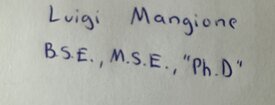 Luigi Mangione
B.S.E., M.S.E., "Ph.D"